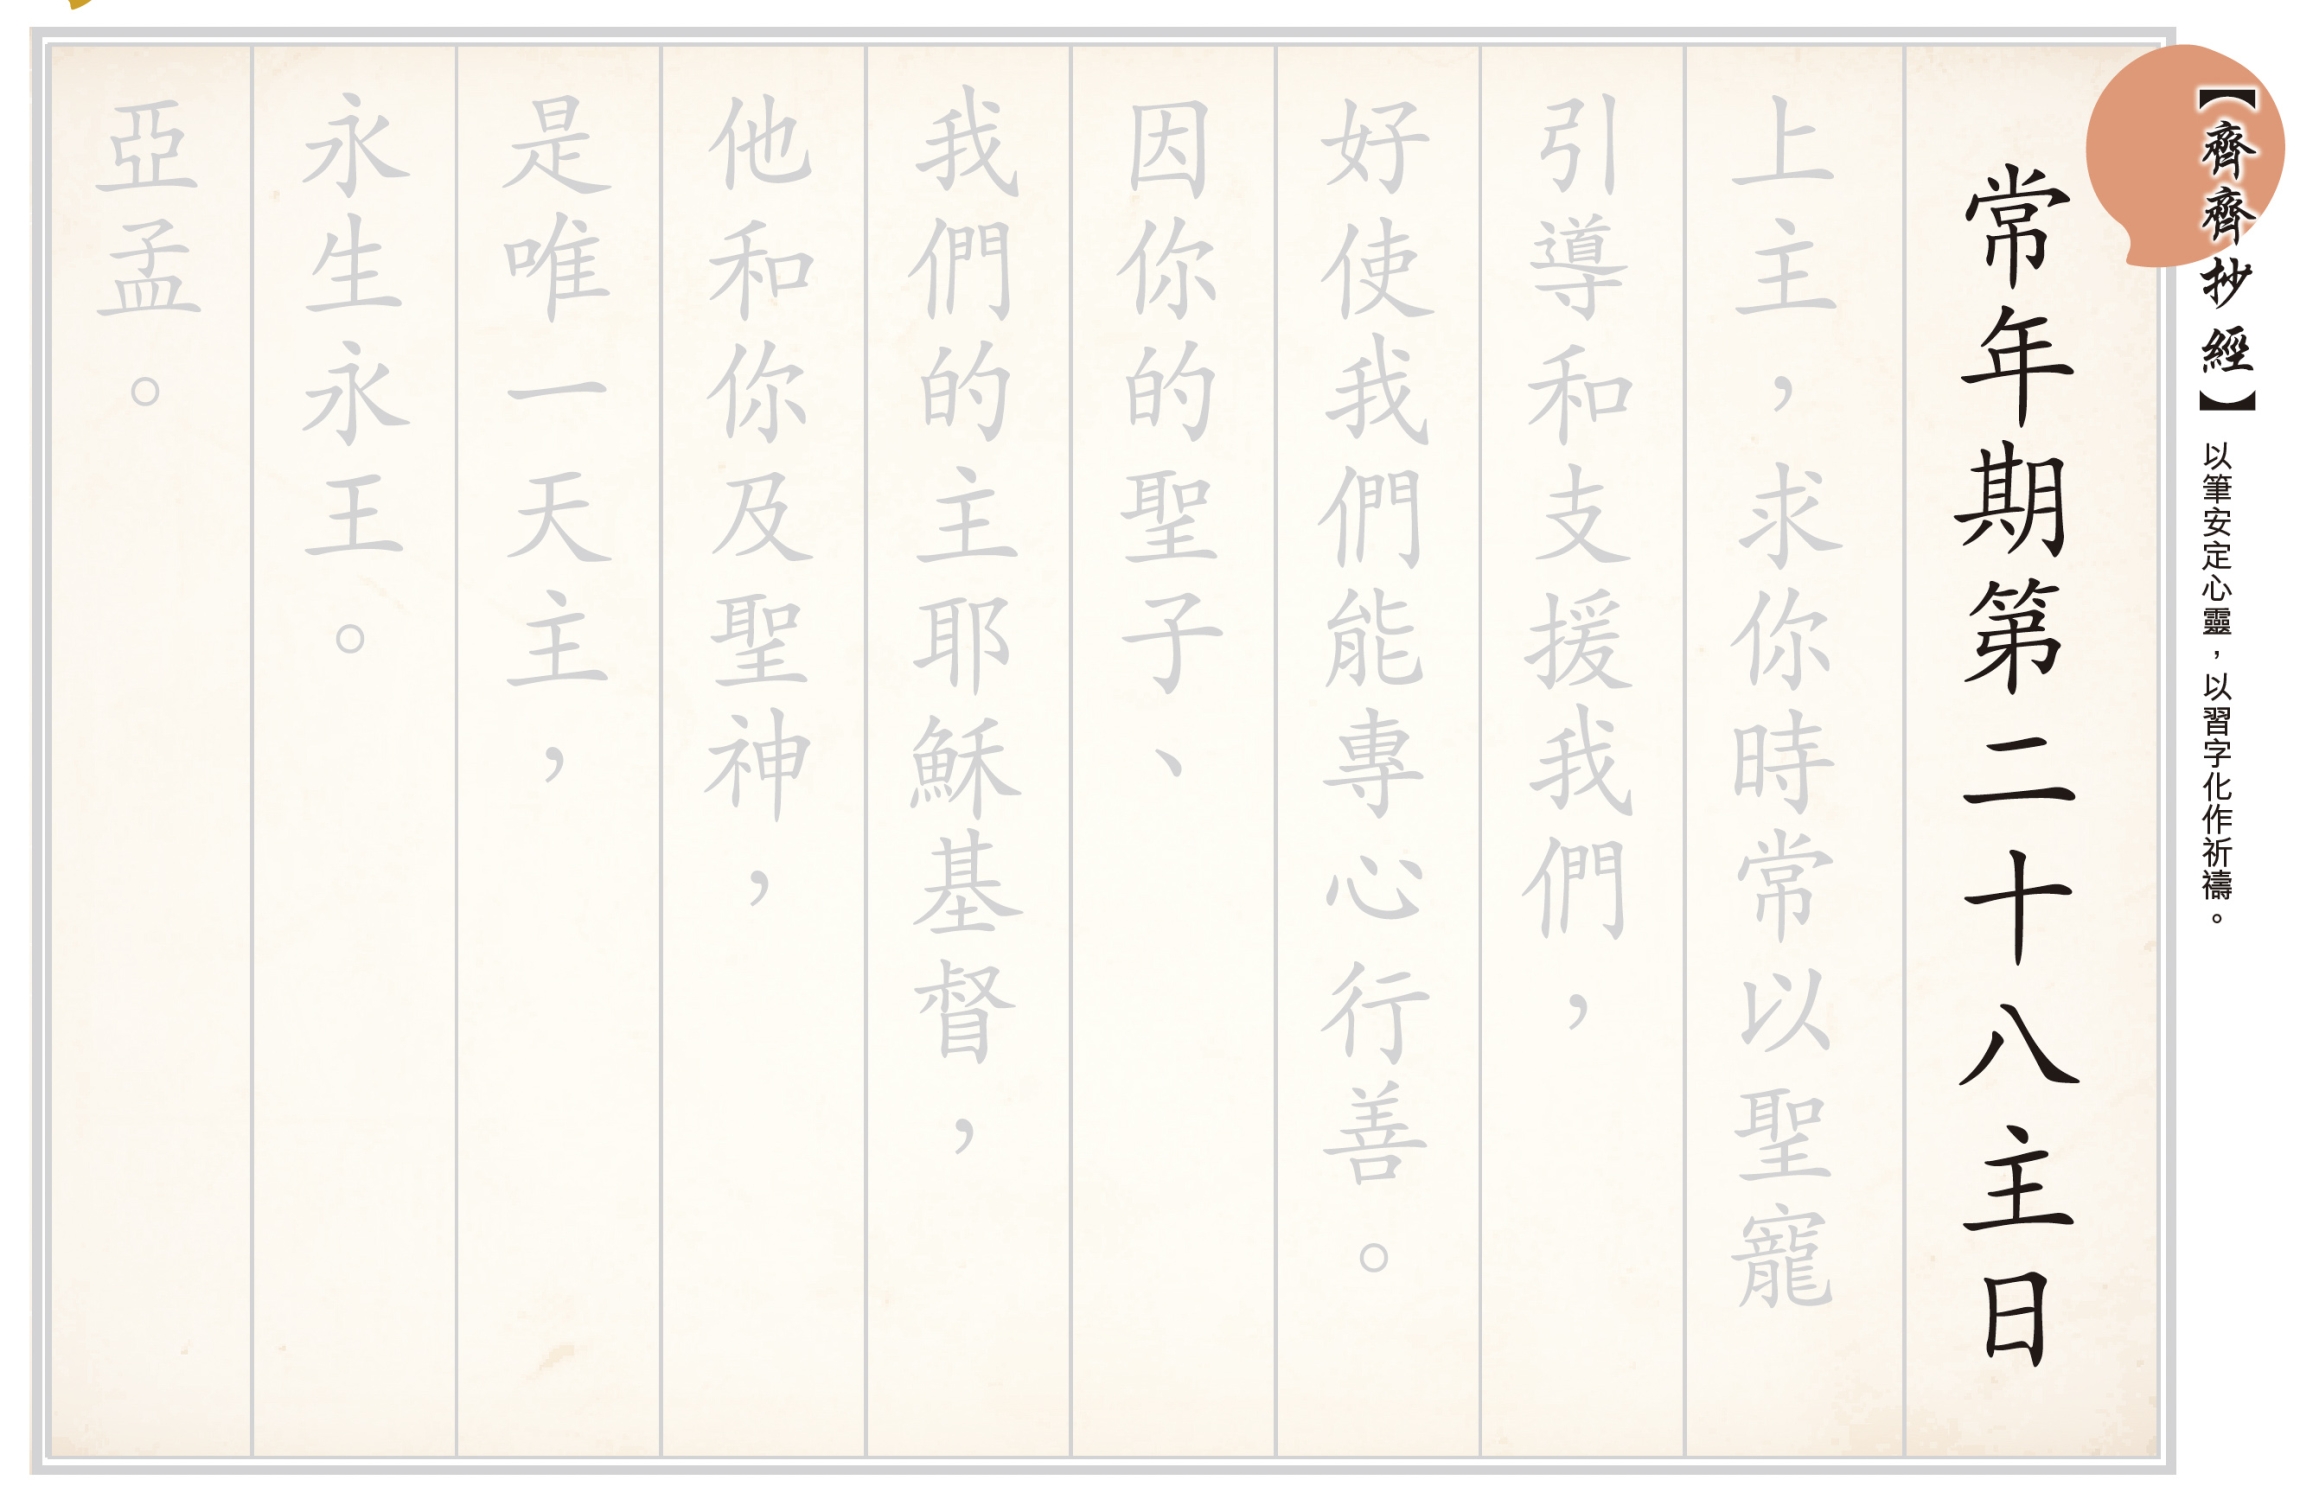 【齊齊抄經】以筆安定心靈，以習字化作祈禱。
常年期第二十八主日
上主，求你時常以聖寵
引導和支援我們，
好使我們能專心行善。
因你的聖子、
我們的主耶穌基督，
他和你及聖神，
是唯一天主，
永生永王。
亞孟。